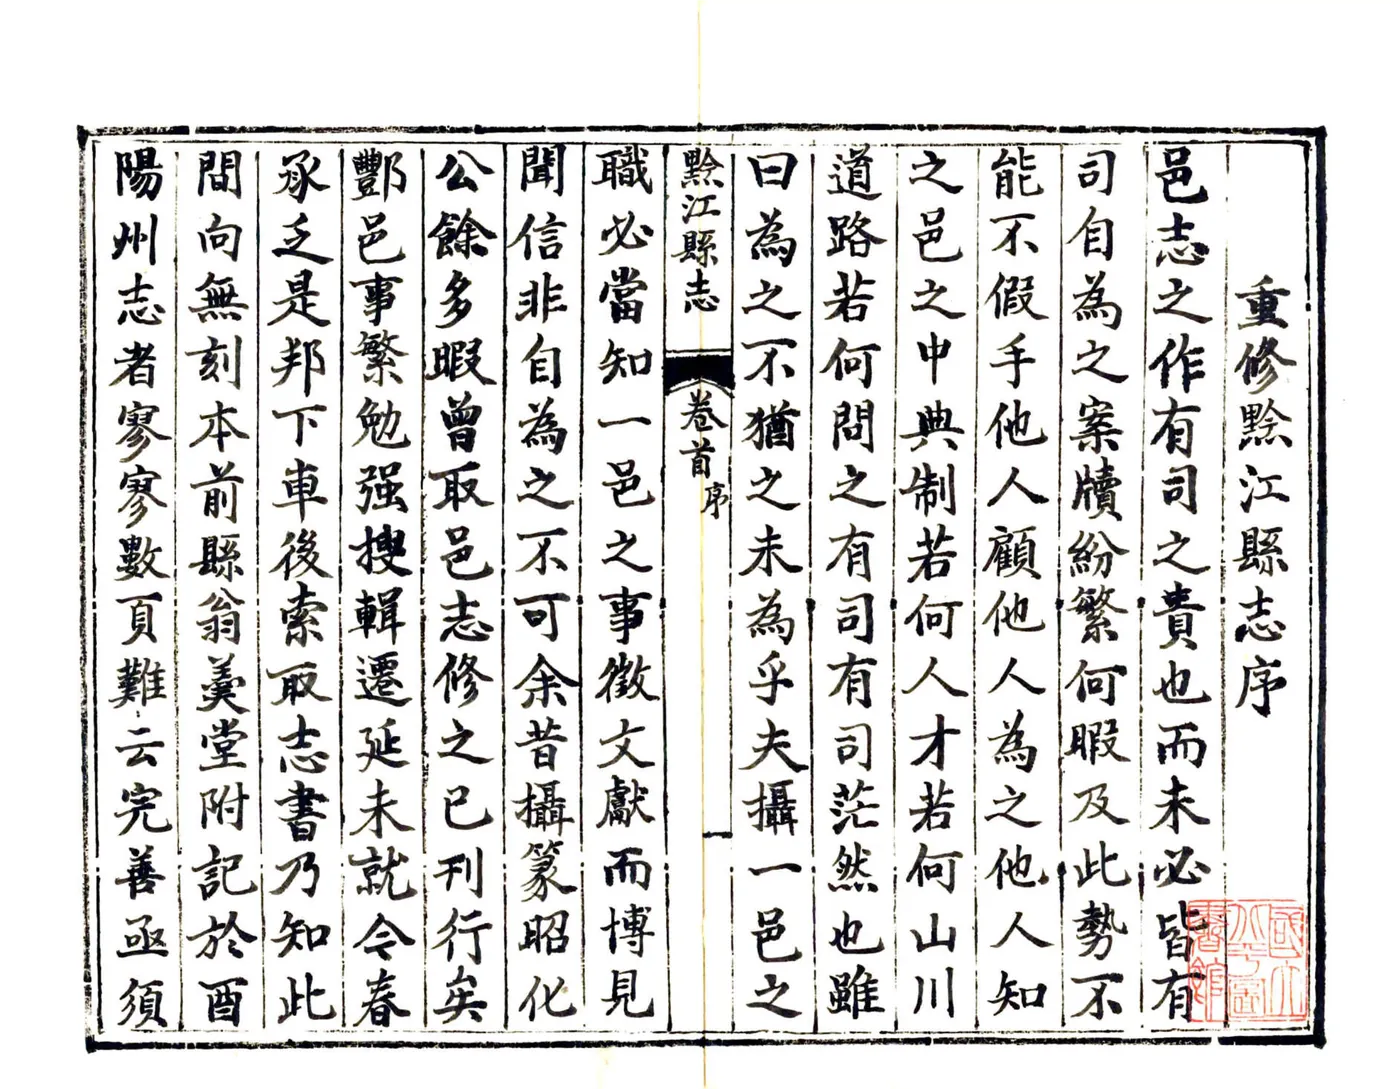 重修黔江縣志序
邑志之作有司之責也而未必皆有
司自為之案牘紛繁何暇及此勢不
能不假手他人顧他人為之他人知
之邑之中典制若何人才若何山川
道路若何問之有司有司茫然也雖
曰為之不猶之未為乎夫攝一邑之
黔江縣志
卷首
序
職必當知一邑之事徵文獻而博見
聞信非自為之不可余昔攝篆昭化
公餘多暇曾取邑志修之已刊行矣
酆邑事繁勉强搜輯遷延未就今春
承乏是邦下車後索取志書乃知此
間向無刻本前縣翁羹堂附記於酉
陽州志者寥寥數頁難云完善亟須
國立北平圖書館